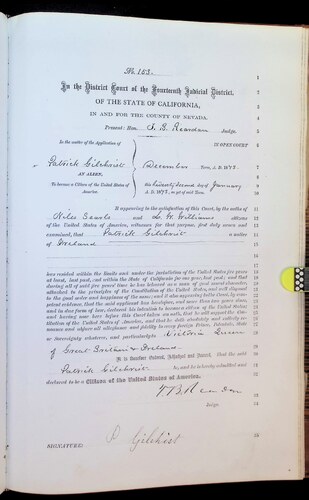 No. 153.
In the District Court of the Fourteenth Judicial District,
OF THE STATE OF CALIFORNIA,
IN AND FOR THE COUNTY OF NEVADA.
Present: Hon. T. B. Reardan Judge.
In the matter of the Application of
IN OPEN COURT
Patrick Gilchrist
AN ALIEN,
To become a Citizen of the United States of America
December Term, A. D. 187
this twenty second day of January
A. D. 187 , as yet of said Term.
It appearing to the satisfaction of this Court, by the oaths of
Niles Searls and L. W. Williams citizens
of the United States of America, witnesses for that purpose, first duly sworn and
examined, that Patrick Gilchrist a native
of Ireland
has resided within the limits and under the jurisdiction of the United States five years
at least, last past, and within the State of California for one year, last past; and that
during all of said five years' time he has behaved as a man of good moral character,
attached to the principles of the Constitution of the United States, and well disposed
to the good order and happiness of the same; and it also appearing to the Court, by com-
petent evidence, that the said applicant has heretofore, and more than two years since,
and in due form of law, declared his intention to become a citizen of the United States;
and having now here before this Court taken an oath, that he will support the Con-
stitution of the United States of America, and that he doth absolutely and entirely re-
nounce and abjure all allegiance and fidelity to every foreign Prince, Potentate, State
or Sovereignty whatever, and particularly to Victoria Queen
of Great Britain & Ireland.
It is therefore Ordered, Adjudged and Decreed, That the said
Patrick Gilchrist be, and is hereby admitted and
declared to be a Citizen of the United States of America.
T. B. Reardan
Judge.
SIGNATURE: P Gilchist